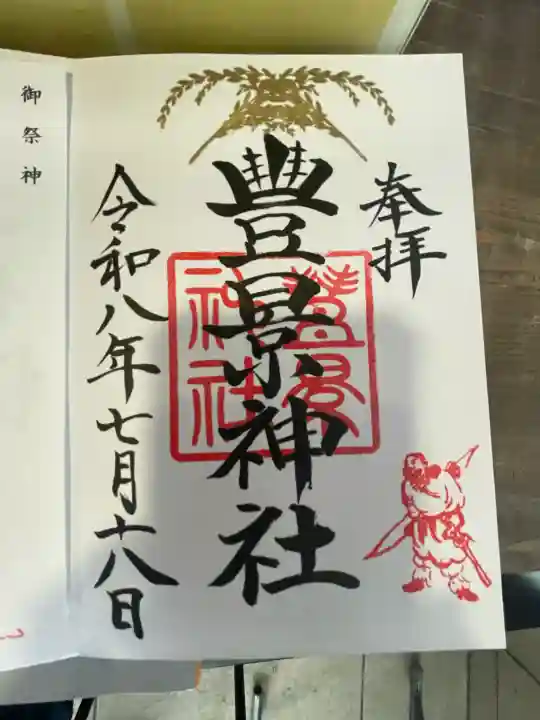 奉拝
豊景神社
豊景神社
令和八年七月十八日
御祭神